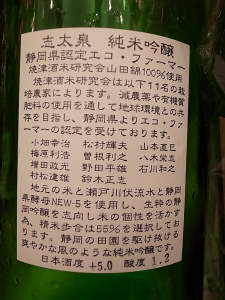 志太泉 純米吟醸
静岡県認定エコ・ファーマー
焼津酒米研究会山田錦100%使用
焼津酒米研究会は以下11名の栽
培農家によります。減農薬や有機質
肥料の使用を通して地球環境との共
存を目指し、静岡県よりエコ・ファ
ーマーの認定を受けております。
小畑幸治 松村輝夫 山本直巳
梅原利浩 曽根利之 八木栄志
増田政光 野田平雄 石川和之
村松達雄 鈴木正志
地元の米と瀬戸川伏流水と静岡
県酵母NEW-5を使用し、生粋の静
岡吟醸を志向し米の個性を活かす
為、精米歩合は55%を選択してお
ります。静岡の田園を駆け抜ける
爽やかな風のような純米吟醸です。
日本酒度 +5.0 酸度 1.2